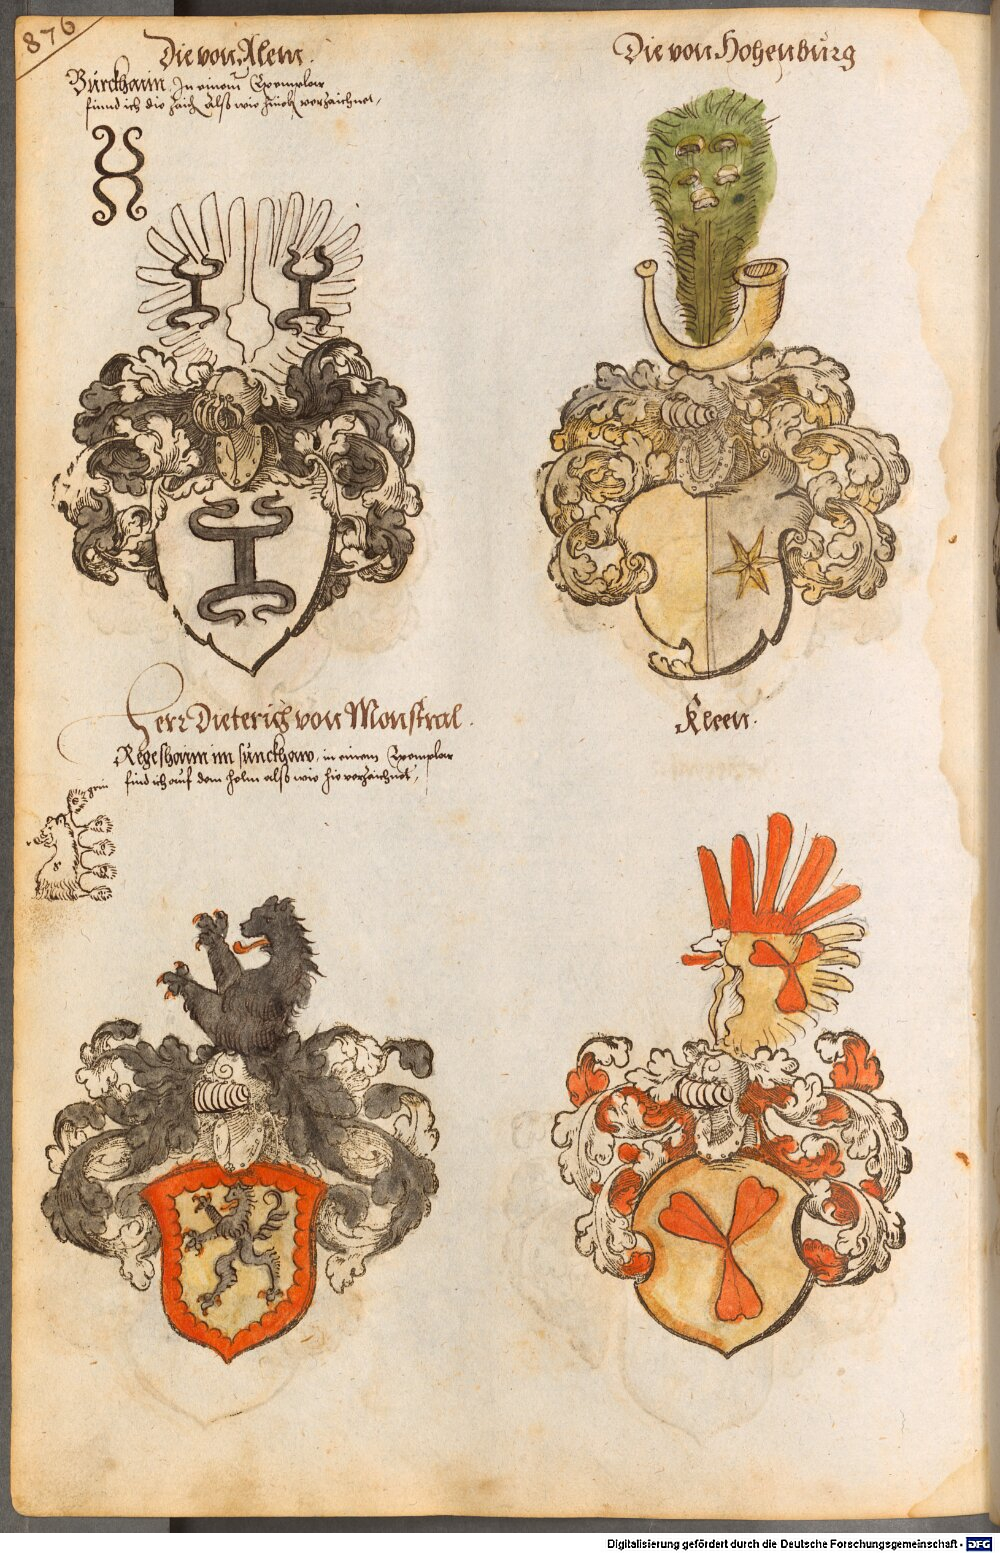 876
Die von Alem.
Burckhaim, In einem Exemplar
finnd ich die zaich. Alß wie hüeb verzaichnet,
Die von Hohenburg
Herr Dieterich von Monstral.
Regeshaim im sunckhaw, in einem Exemplar
find ich auf dem helm alß wie hie verzaichnet,
Kleen.
Digitalisierung gefördert durch die Deutsche Forschungsgemeinschaft - DFG